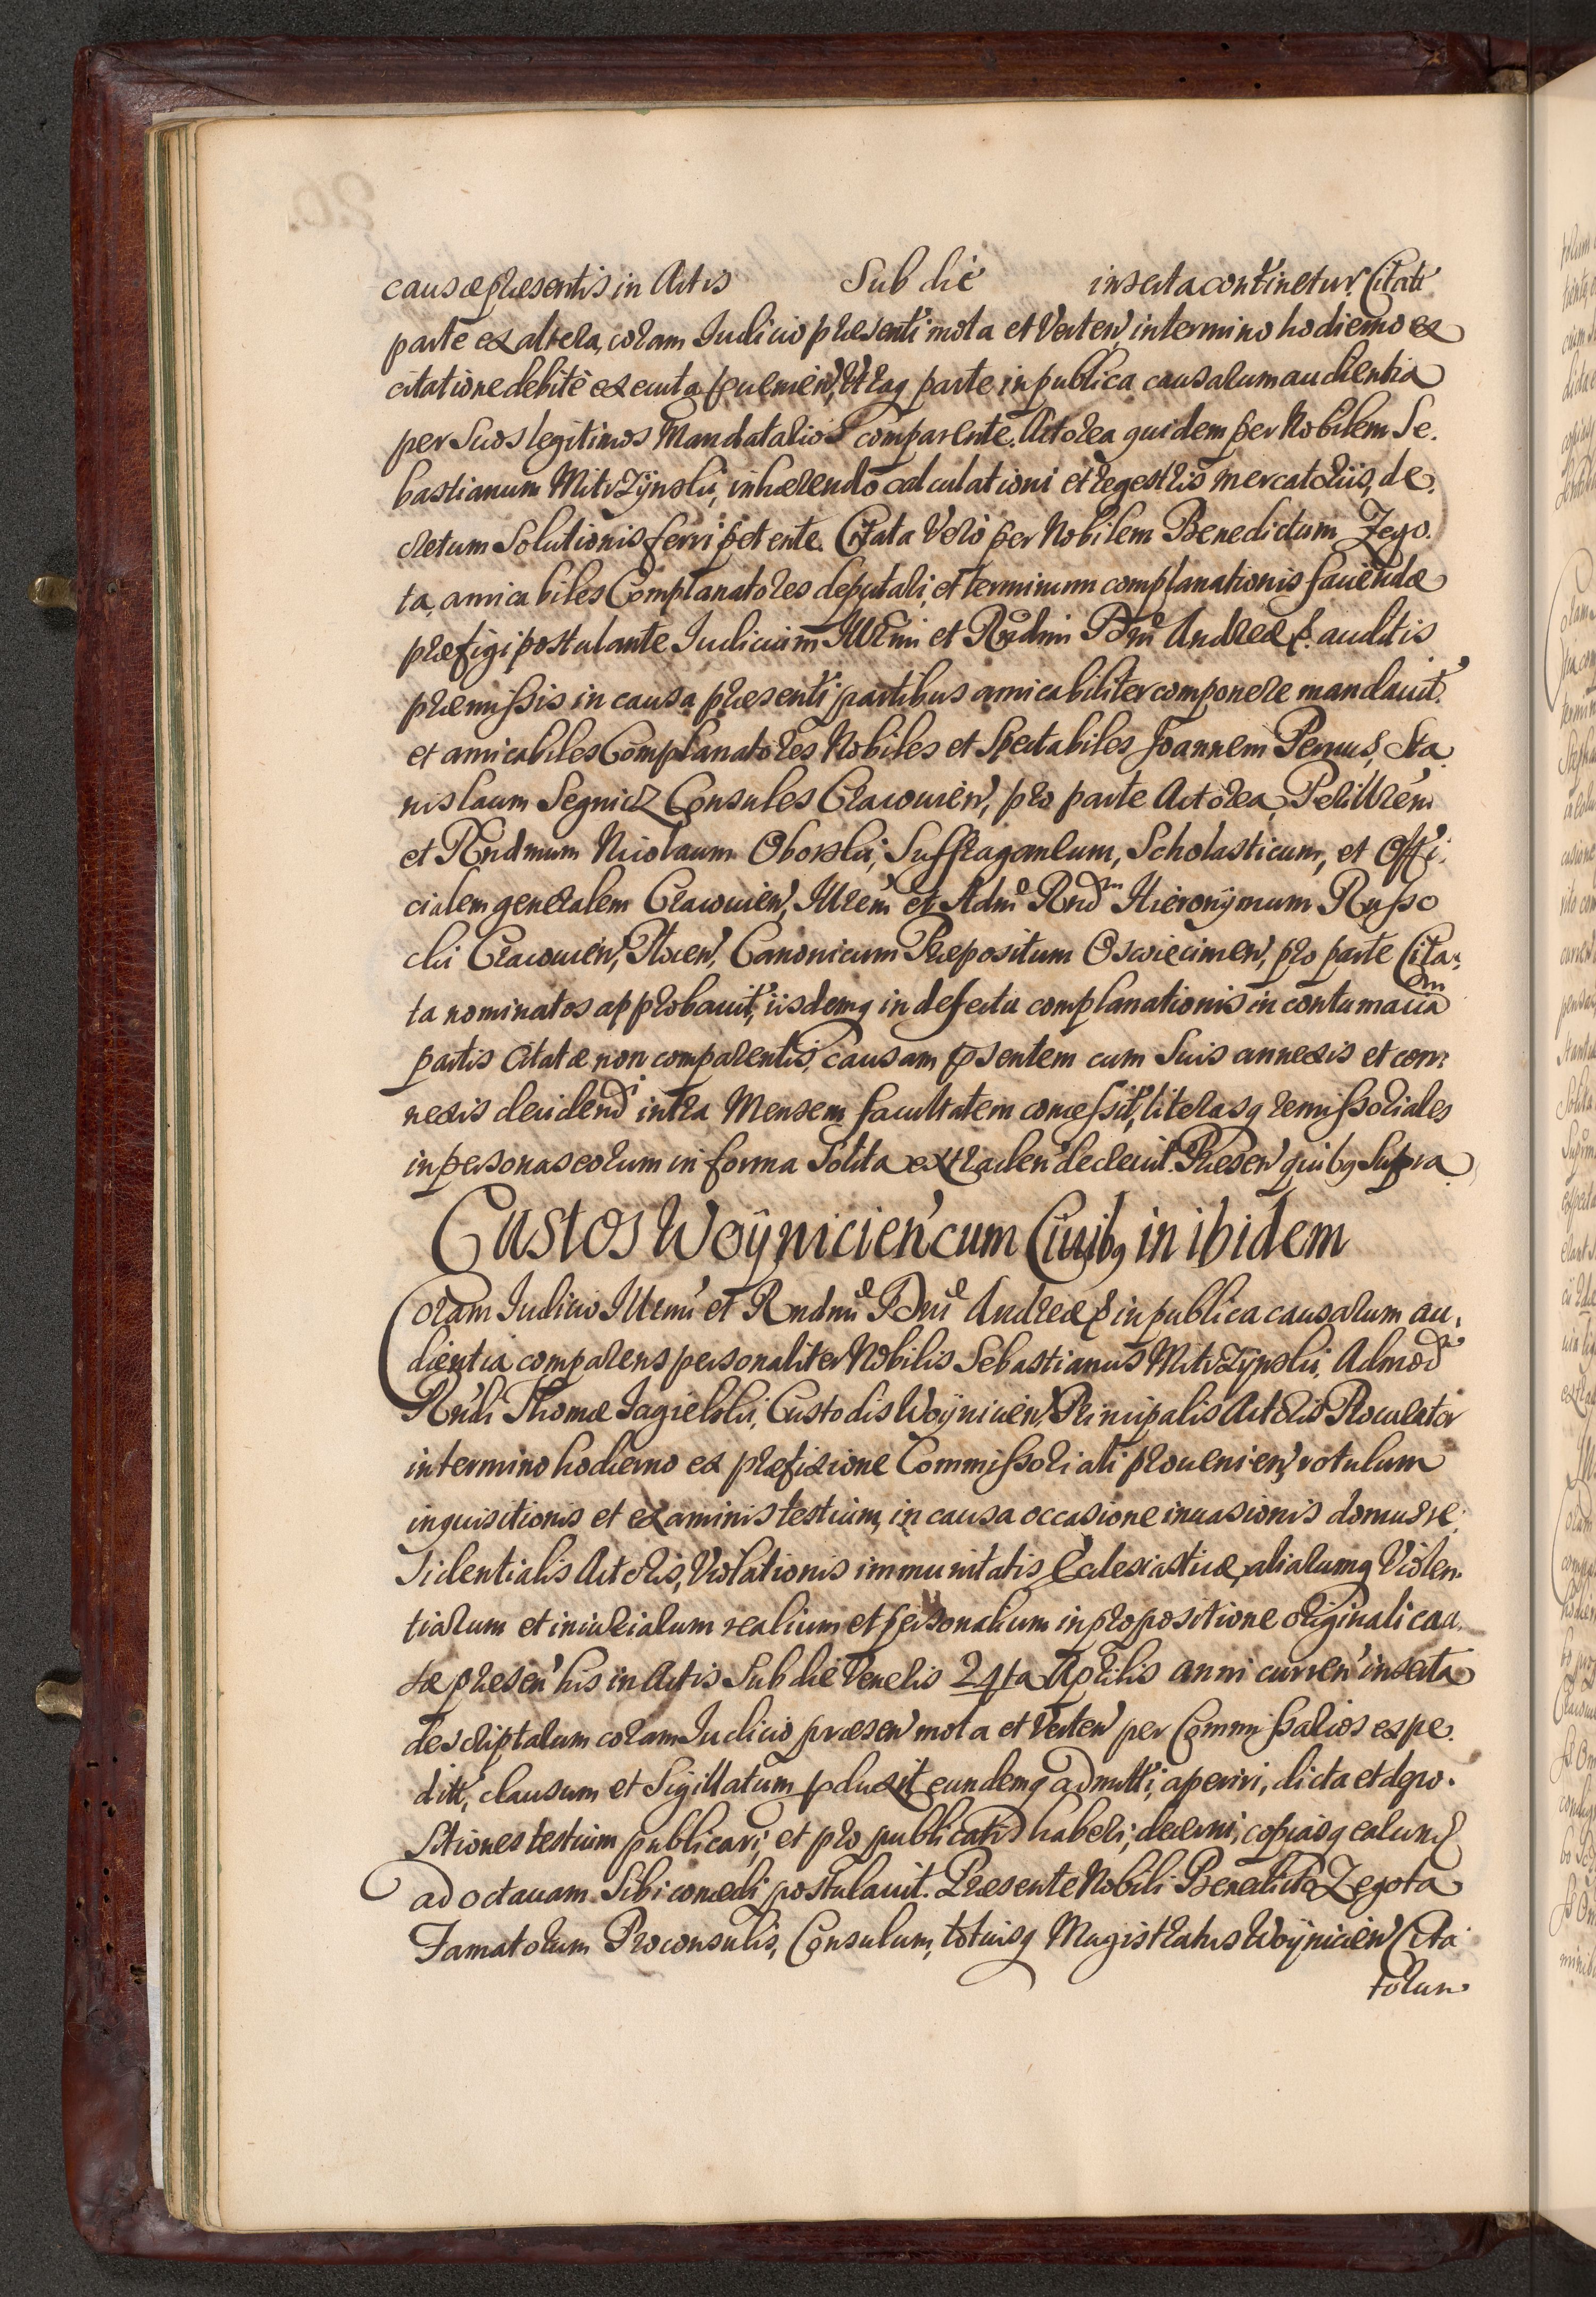 causæ præsentis in Actis Sub die inserta continetur. Citati
parte ex altera, coram Iudicio præsenti mota et Verten, in termino hodierno ex
citatione debitè executa prouenien, Utraq parte in publica causarum audientia
per Suos legitimos Mandatarios comparente. Actorea quidem per Nobilem Se-
bastianum Mitrzÿnski, inhærendo calculationi et regestris mercatoriis, de-
cretum Solutionis ferri petente. Citata Verò per Nobilem Benedictum Zego-
ta, amicabiles Complanatores deputari, et terminum complanationis faciendæ
præfigi postulante Iudicium Illrmi et Rndmi Dni Andreæ &. auditis
præmissis in causa præsenti partibus amicabiliter componere mandauit.
et amicabiles Complanatores Nobiles et Spectabiles Joannem Pernus, Sta-
nislaum Segnicz Consules Cracouien, pro parte Actorea, Perillrem
et Rndmum Nicolaum Oborski, Suffraganeum, Scholasticum, et Offi-
cialem generalem Cracouien, Illrem et Adm Rnd Hieronÿmum Russo
cki Cracouien, Plocen, Canonicum Præpositum Oswiecimen, pro parte Cita-
ta nominatos approbauit, iisdemq in defectu complanationis in contumaciam
partis Citatæ non comparentis, causam psentem cum Suis annexis et con-
nexis decidendi intra Mensem facultatem concessit, literasq remissoriales
in personas eorum in forma Solita extraden decreuit. Præsen quibq Supra
Custos Woÿnicien cum Ciuibq in ibidem
Coram Iudicio Illrmi et Rndmi Dni Andreæ & in publica causarum au-
dientia comparens personaliter Nobilis Sebastianus Mitrzÿnski, Admod
Rndi Thomæ Jagielski, Custodis Woÿnicien, Principalis Actoris Procurator
in termino hodierno ex præfixione Commissoriali prouenien, rotulum
inquisitionis et examinis testium, in causa occasione inuasionis domus re-
sidentialis Actoris, Violationis immunitatis Ecclesiasticæ, aliarumq Violen-
tiarum et iniuriarum realium et personalium in propositione originali cau-
sæ præsen his in Actis Sub die Veneris 24ta Aprilis anni curren inserta
descriptarum coram Iudicio præsen mota et Verten per Commissarios expe-
ditt, clausum et Sigillatum pduxit, eundemq admitti, aperiri, dicta et depo-
sitiones testium publicari, et pro publicatis haberi, decerni, copiasq earum
ad octauam Sibi concedi postulauit. Præsente Nobili Benedicto Zegota
Famatorum Proconsulis, Consulum, totiusq Magistratus Woÿnicien Cita-
torum